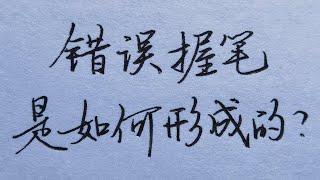 错误握笔
是如何形成的？